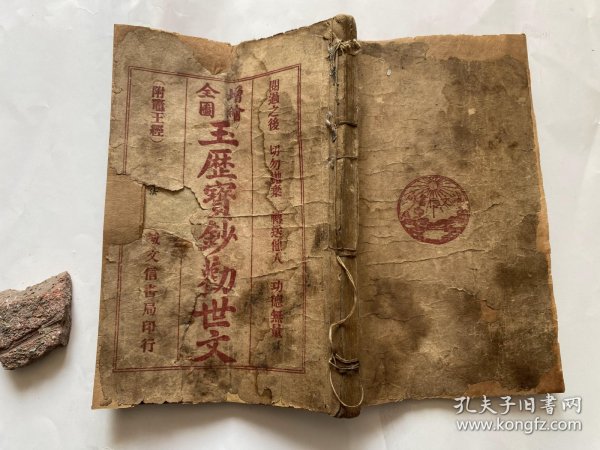 閱過之後 切勿 轉送他人 功德無量
增繪
全圖
玉歷寶鈔勸世文
(附竈王經)
文信書局印行
孔夫子旧书网
www.kongfz.com